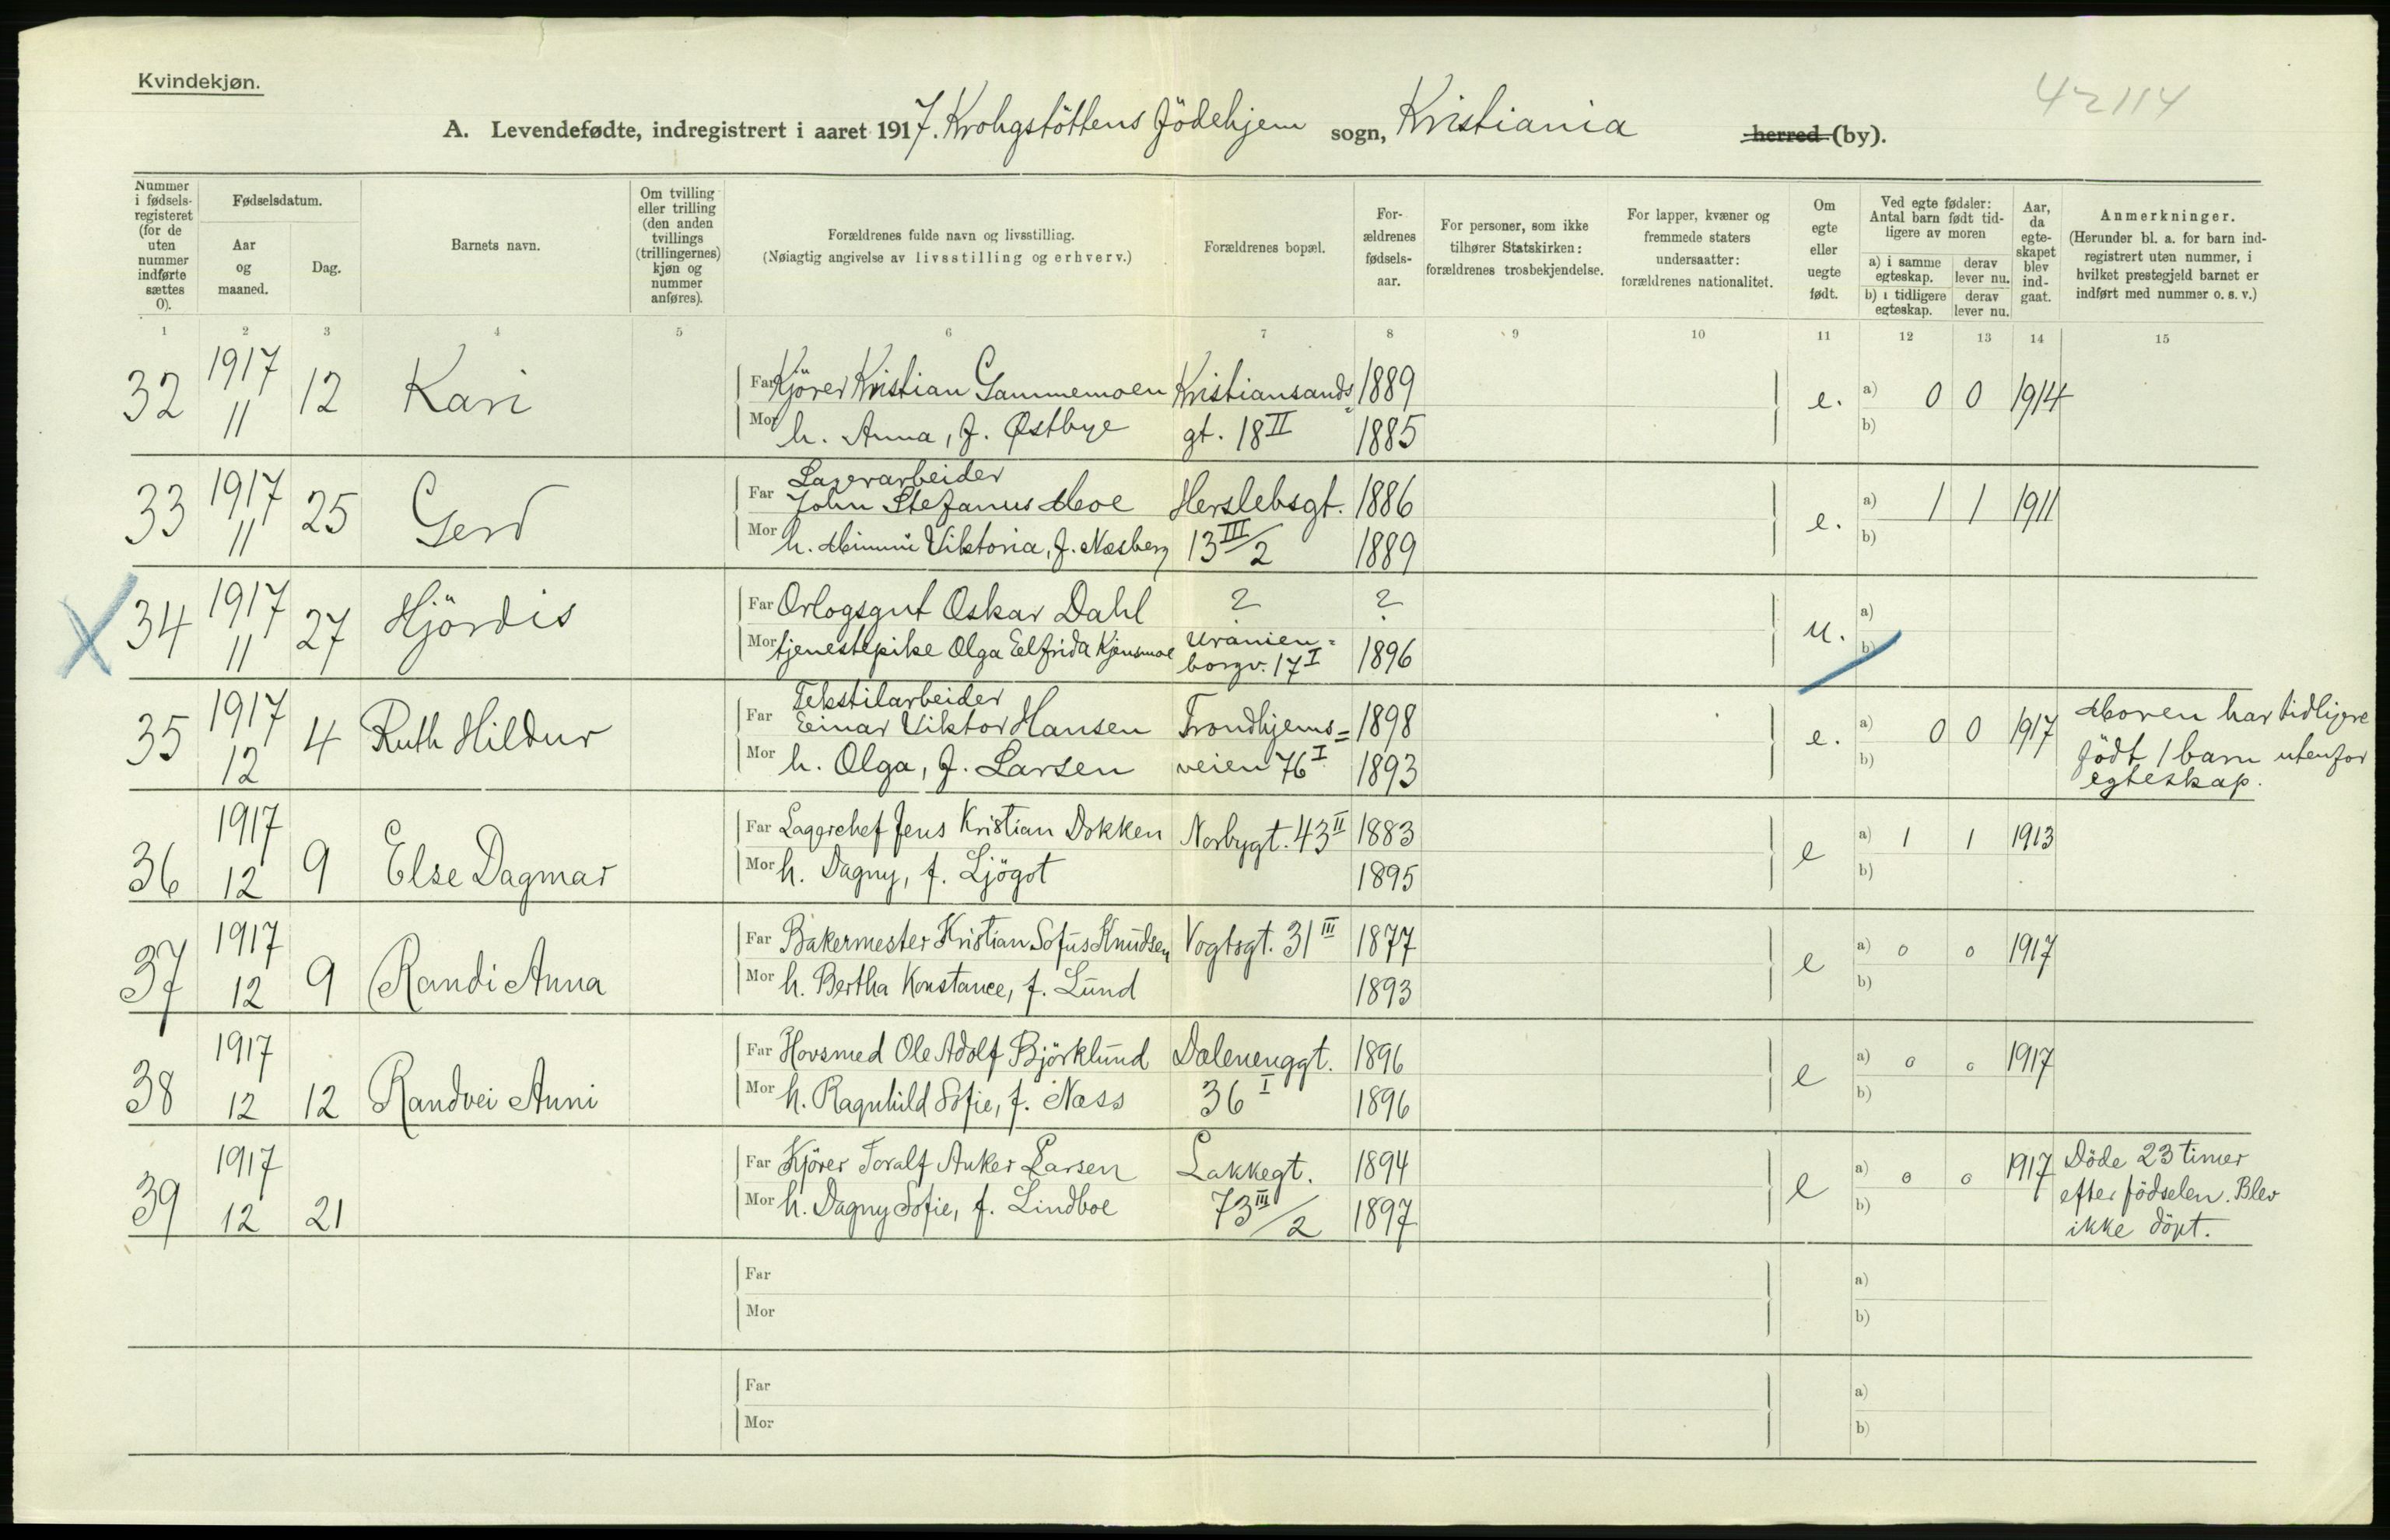 Kvindekjøn.
42114
A. Levendefødte, indregistrert i aaret 1917. Krohgstöttens Födehjem sogn, Kristiania herred (by).
Nummer i fødsels-registeret (for de uten nummer indførte sættes 0).
Fødselsdatum.
Aar og maaned.
Dag.
Barnets navn.
Om tvilling eller trilling (den anden tvillings (trillingernes) kjøn og nummer anføres).
Forældrenes fulde navn og livsstilling.
(Nøiagtig angivelse av livsstilling og erhverv.)
Forældrenes bopæl.
For-ældrenes fødsels-aar.
For personer, som ikke tilhører Statskirken: forældrenes trosbekjendelse.
For lapper, kvæner og fremmede staters undersaatter: forældrenes nationalitet.
Om egte eller uegte født.
Ved egte fødsler: Antal barn født tid-ligere av moren
a) i samme egteskap.
derav lever nu.
b) i tidligere egteskap.
derav lever nu.
Aar, da egte-skapet blev ind-gaat.
Anmerkninger.
(Herunder bl. a. for barn ind-registrert uten nummer, i hvilket prestegjeld barnet er indført med nummer o. s. v.)
1 2 3 4 5 6 7 8 9 10 11 12 13 14 15
32 1917 11 12 Kari
Far Kjörer Kristian Gammemoen Kristiansands= 1889
Mor h. Anna, f. Østbye gt. 18 II 1885
e. a) 0 0 1914
b)
33 1917 11 25 Gerd
Lagerarbeider
Far John Stefanus Moe Herslebsgt. 1886
Mor h. Mimmi Viktoria, f. Næsberg 13 III/2 1889
e. a) 1 1 1911
b)
X 34 1917 11 27 Hjördis
Far Orlogsgut Oskar Dahl ? ?
Mor tjenestepike Olga Elfrida Kjensmoe Uranien=
borgv. 17 I 1896
u. a)
b)
35 1917 12 4 Ruth Hildur
Tekstilarbeider
Far Einar Viktor Hansen Trondhjems= 1898
Mor h. Olga, f. Larsen veien 76 I 1893
e. a) 0 0 1917
b)
Moren har tidligere
födt 1 barn utenfor
egteskap.
36 1917 12 9 Else Dagmar
Far Lagerchef Jens Kristian Dokken Norbygt. 43 II 1883
Mor h. Dagny, f. Ljögot 1895
e a) 1 1 1913
b)
37 1917 12 9 Randi Anna
Far Bakermester Kristian Sofus Knudsen Vogtsgt. 31 III 1877
Mor h. Bertha Konstance, f. Lund 1893
e a) 0 0 1917
b)
38 1917 12 12 Randvei Anni
Far Hovsmed Ole Adolf Björklund Dælenenggt. 1896
Mor h. Ragnhild Sofie, f. Næss 36 I 1896
e a) 0 0 1917
b)
39 1917 12 21
Far Kjörer Toralf Anker Larsen Lakkegt. 1894
Mor h. Dagny Sofie, f. Lindboe 73 III/2 1897
e a) 0 0 1917
b)
Döde 23 timer
efter födselen. Blev
ikke döpt.
Far
Mor
a)
b)
Far
Mor
a)
b)